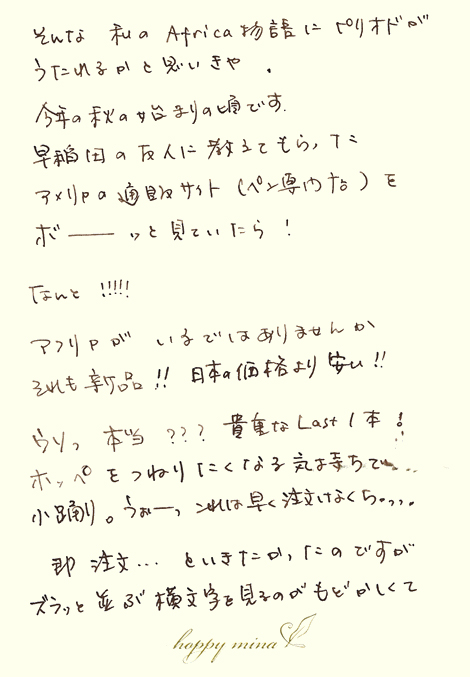 そんな 私の Africa物語に ピリオドが
うたれるかと思いきや .
今年の秋の始まりの頃です.
早稲田の友人に教えてもらった
アメリカの通販サイト (ペン専門な) を
ボ――ッと見ていたら !
なんと !!!!!
アフリカが いるではありませんか
それも新品 !! 日本の価格より 安い !!
ウソっ 本当 ??? 貴重なLast 1本 !
ホッペをつねりたくなる気持ちで...
小踊り。うぉーっ これは早く注文しなくちゃっ...
即 注文... といきたかったのですが
ズラッと並ぶ横文字を見るのがもどかしくて
happy mina